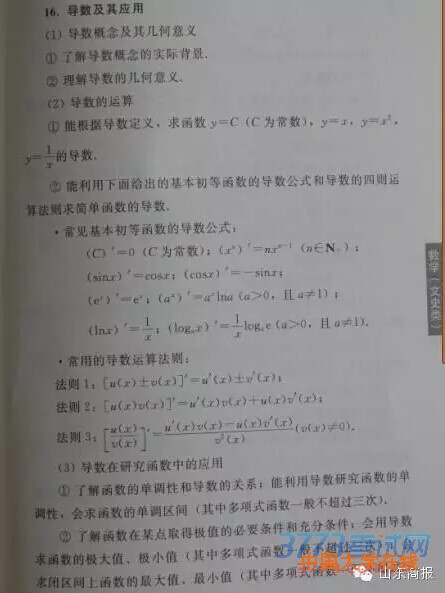 16. 导数及其应用
(1) 导数概念及其几何意义
① 了解导数概念的实际背景.
② 理解导数的几何意义.
(2) 导数的运算
① 能根据导数定义,求函数 y=C (C 为常数),y=x,y=x²,
y=1/x的导数.
② 能利用下面给出的基本初等函数的导数公式和导数的四则运
算法则求简单函数的导数.
·常见基本初等函数的导数公式:
(C)′=0 (C 为常数);(xⁿ)′=nxⁿ⁻¹ (n∈N₊);
(sinx)′=cosx;(cosx)′=-sinx;
(eˣ)′=eˣ;(aˣ)′=aˣlna (a>0,且 a≠1);
(lnx)′=1/x;(logₐx)′=1/x logₐe (a>0,且 a≠1).
·常用的导数运算法则:
法则 1:[u(x)±v(x)]′=u′(x)±v′(x);
法则 2:[u(x)v(x)]′=u′(x)v(x)+u(x)v′(x);
法则 3:[u(x)/v(x)]′=u′(x)v(x)-u(x)v′(x)/v²(x) (v(x)≠0).
(3) 导数在研究函数中的应用
① 了解函数的单调性和导数的关系;能利用导数研究函数的单
调性,会求函数的单调区间 (其中多项式函数一般不超过三次).
② 了解函数在某点取得极值的必要条件和充分条件;会用导数
求函数的极大值、极小值 (其中多项式函数一般不超过三次);会
求闭区间上函数的最大值、最小值 (其中多项式函数一
数学(文史类)
3773考试网
中国大学在线
山东商报